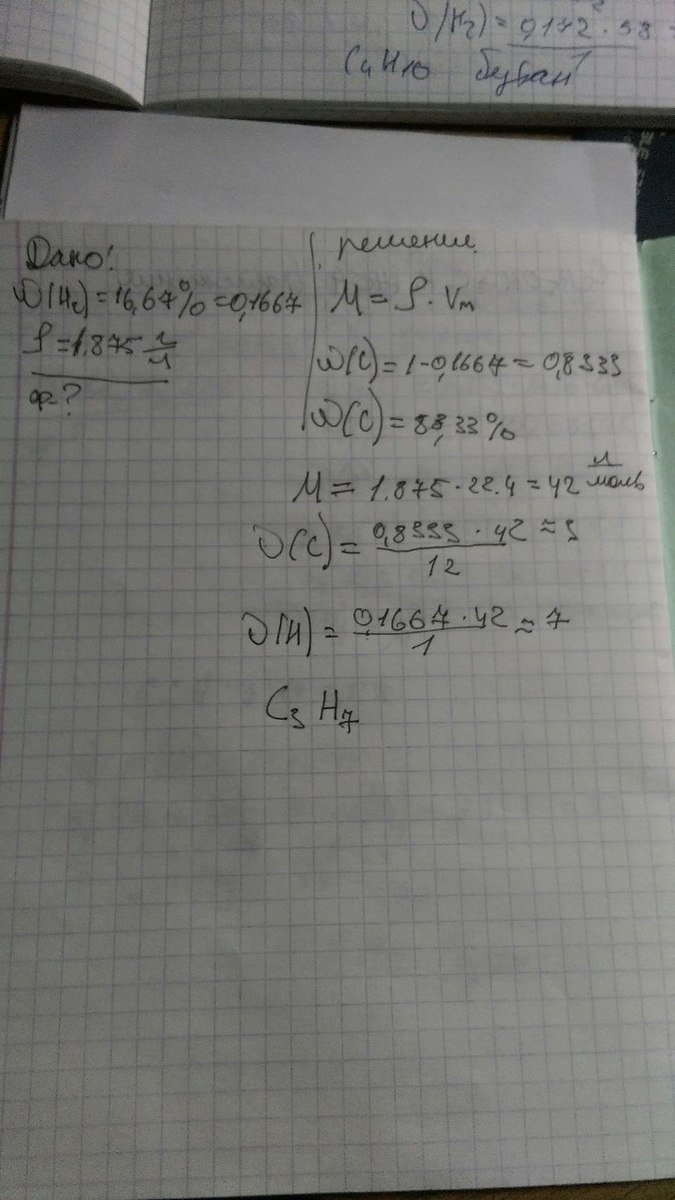 ν(H₂) = 0,172 · 58
C₄H₁₀ бутан
Дано!
ω(H₂) = 16,67% = 0,1667
ρ = 1.875 г/л
ф-?
решении
M = ρ · Vm
ω(C) = 1 - 0,1667 = 0,8333
ω(C) = 83,33%
M = 1.875 · 22.4 = 42 г/моль
ν(C) = 0,8333 · 42 / 12 ≈ 3
ν(H) = 0,1667 · 42 / 1 ≈ 7
C₃ H₇